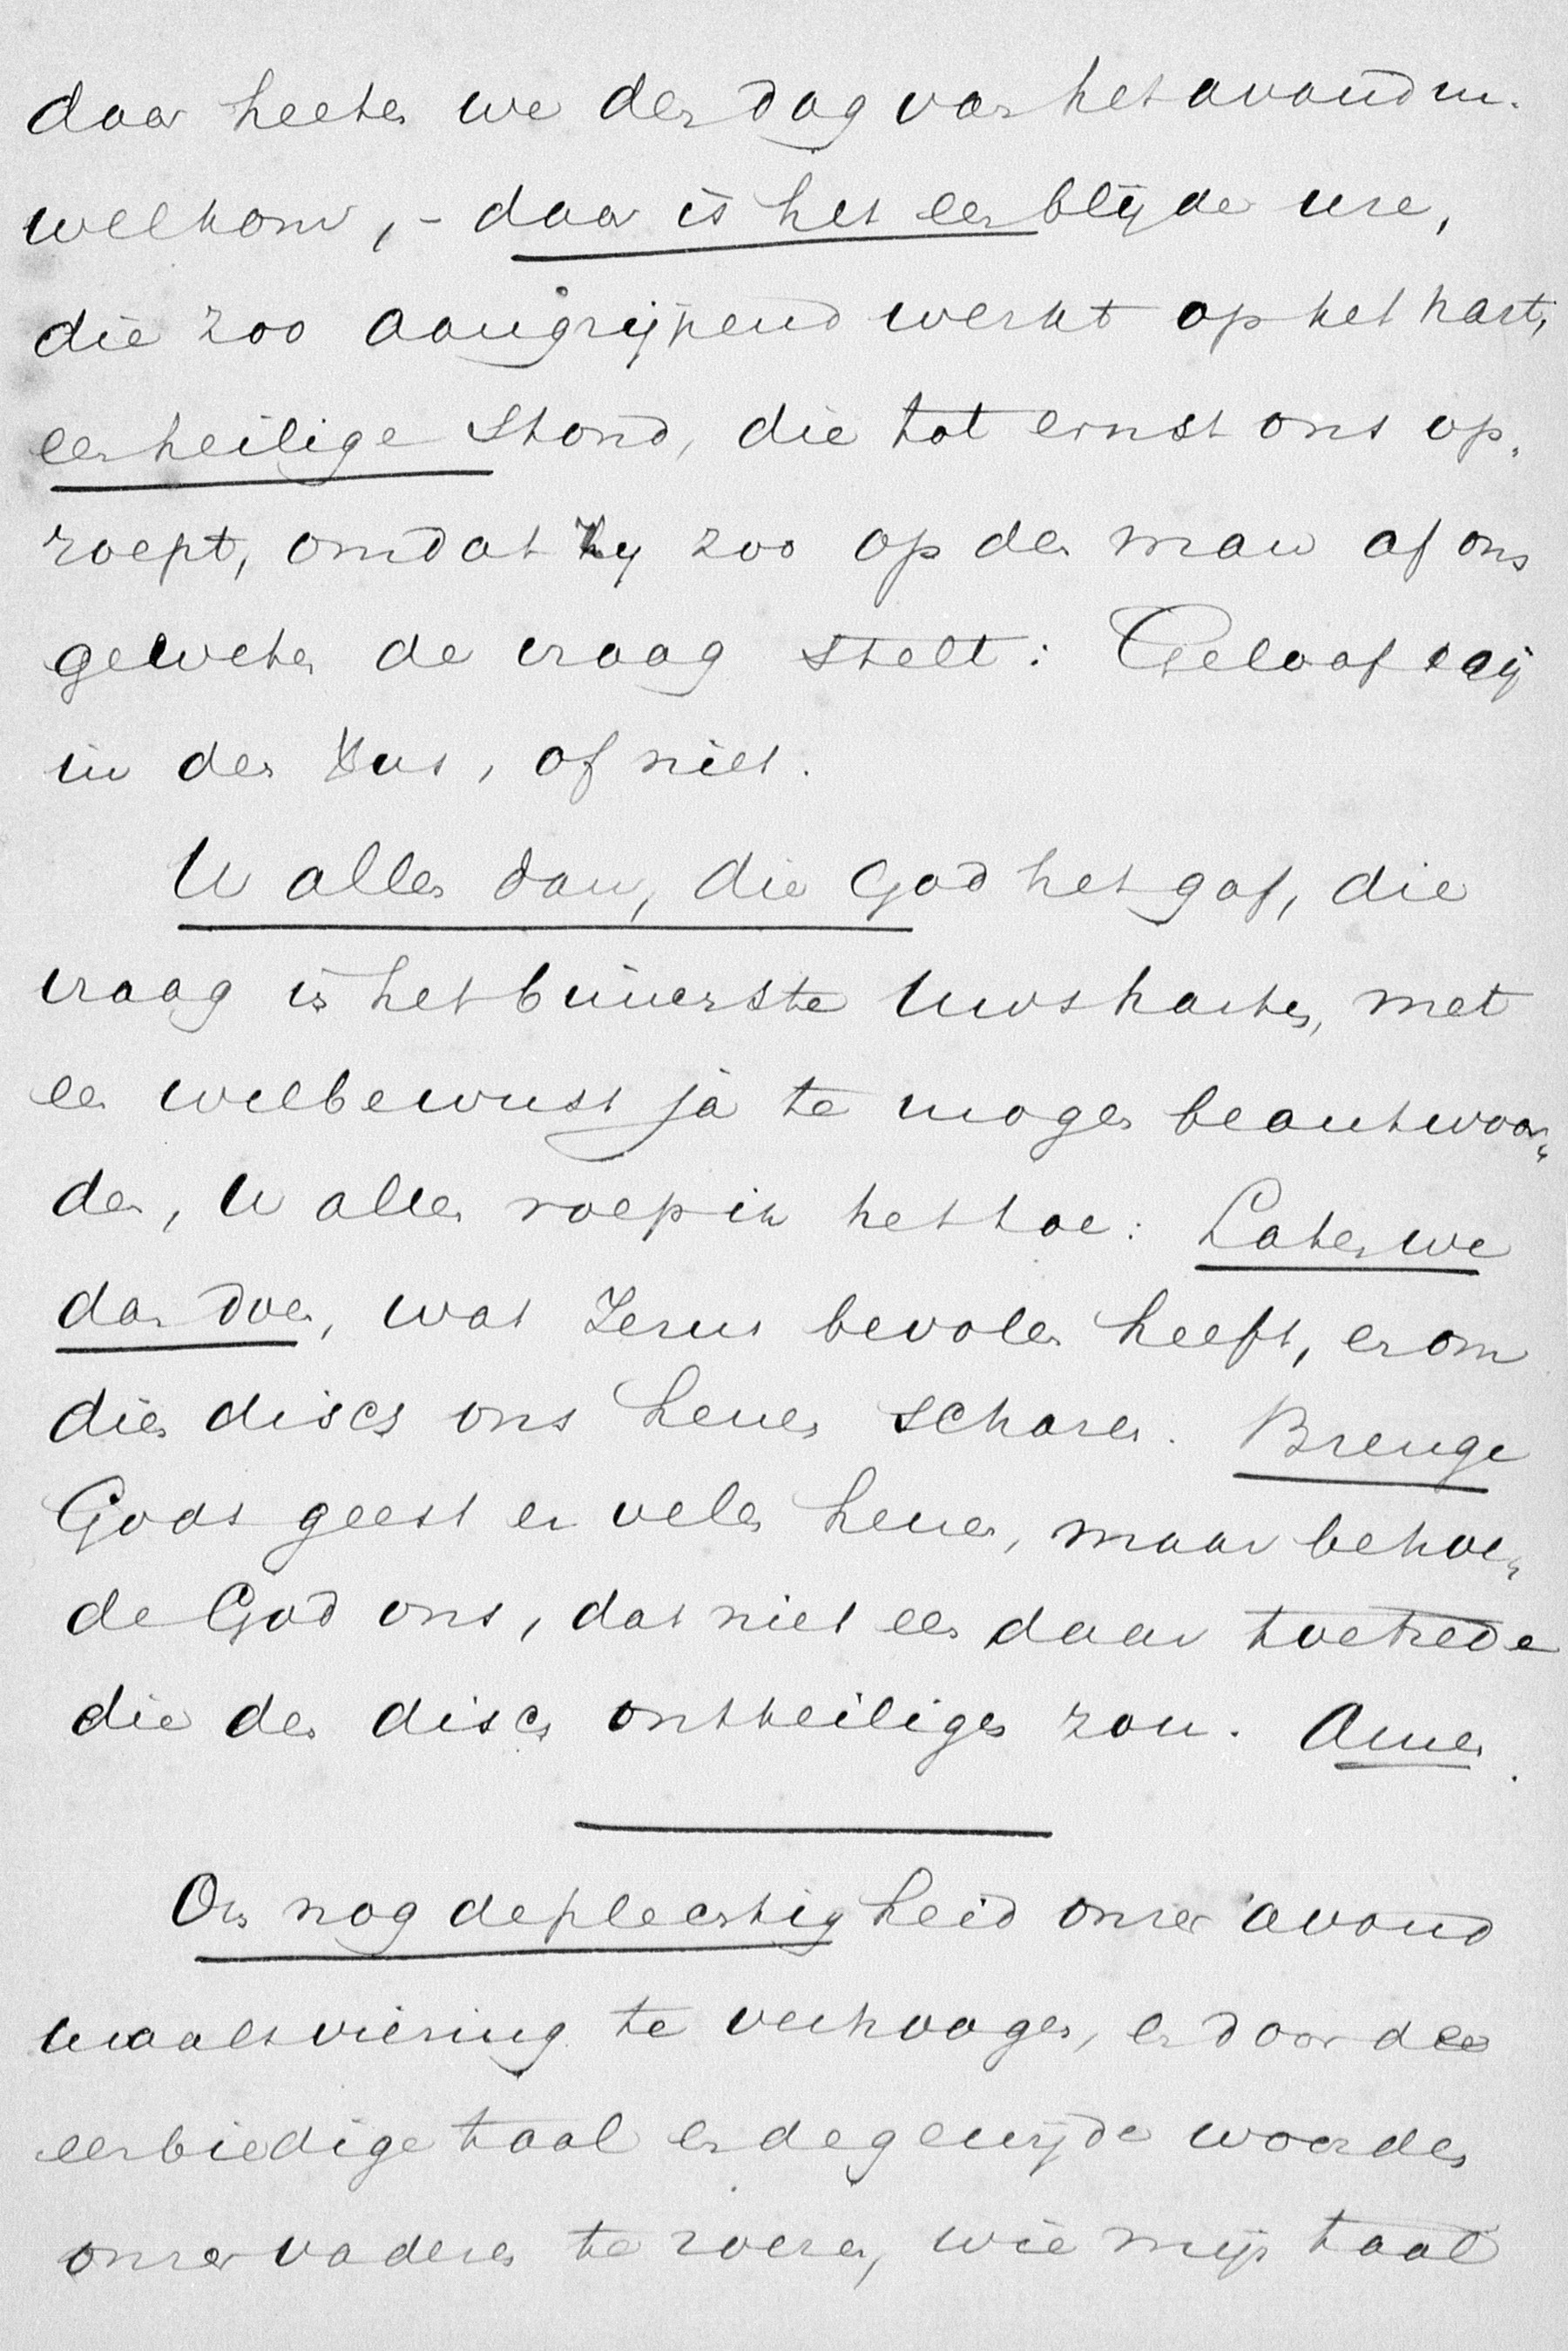 daar heeten we den dag van het avondm.
welkom, - daar is het een blijde ure,
die zoo aangrijpend werkt op het hart,
een heilige stond, die tot ernst ons op-
roept, omdat zij zoo op den man af ons
geweten de vraag stelt: Gelooft gij
in den Xus, of niet.
U allen dan, die God het gaf, die
vraag in het binnenste Uws harten, met
een welbewust ja te mogen beantwoor-
den, U allen roep ik het toe: Laten we
dan doen, wat Jezus bevolen heeft, en om
dien disch ons henen scharen. Brenge
Gods geest er velen henen, maar behoe-
de God ons, dat niet een daar toetrede
die den disch ontheiligen zou. Amen.
Om nog de plechtigheid onzer avond
maalsviering te verhoogen, en door de
eerbiedige taal en de gewijde woorden
onzer vaderen te roeren, wie mijn taal